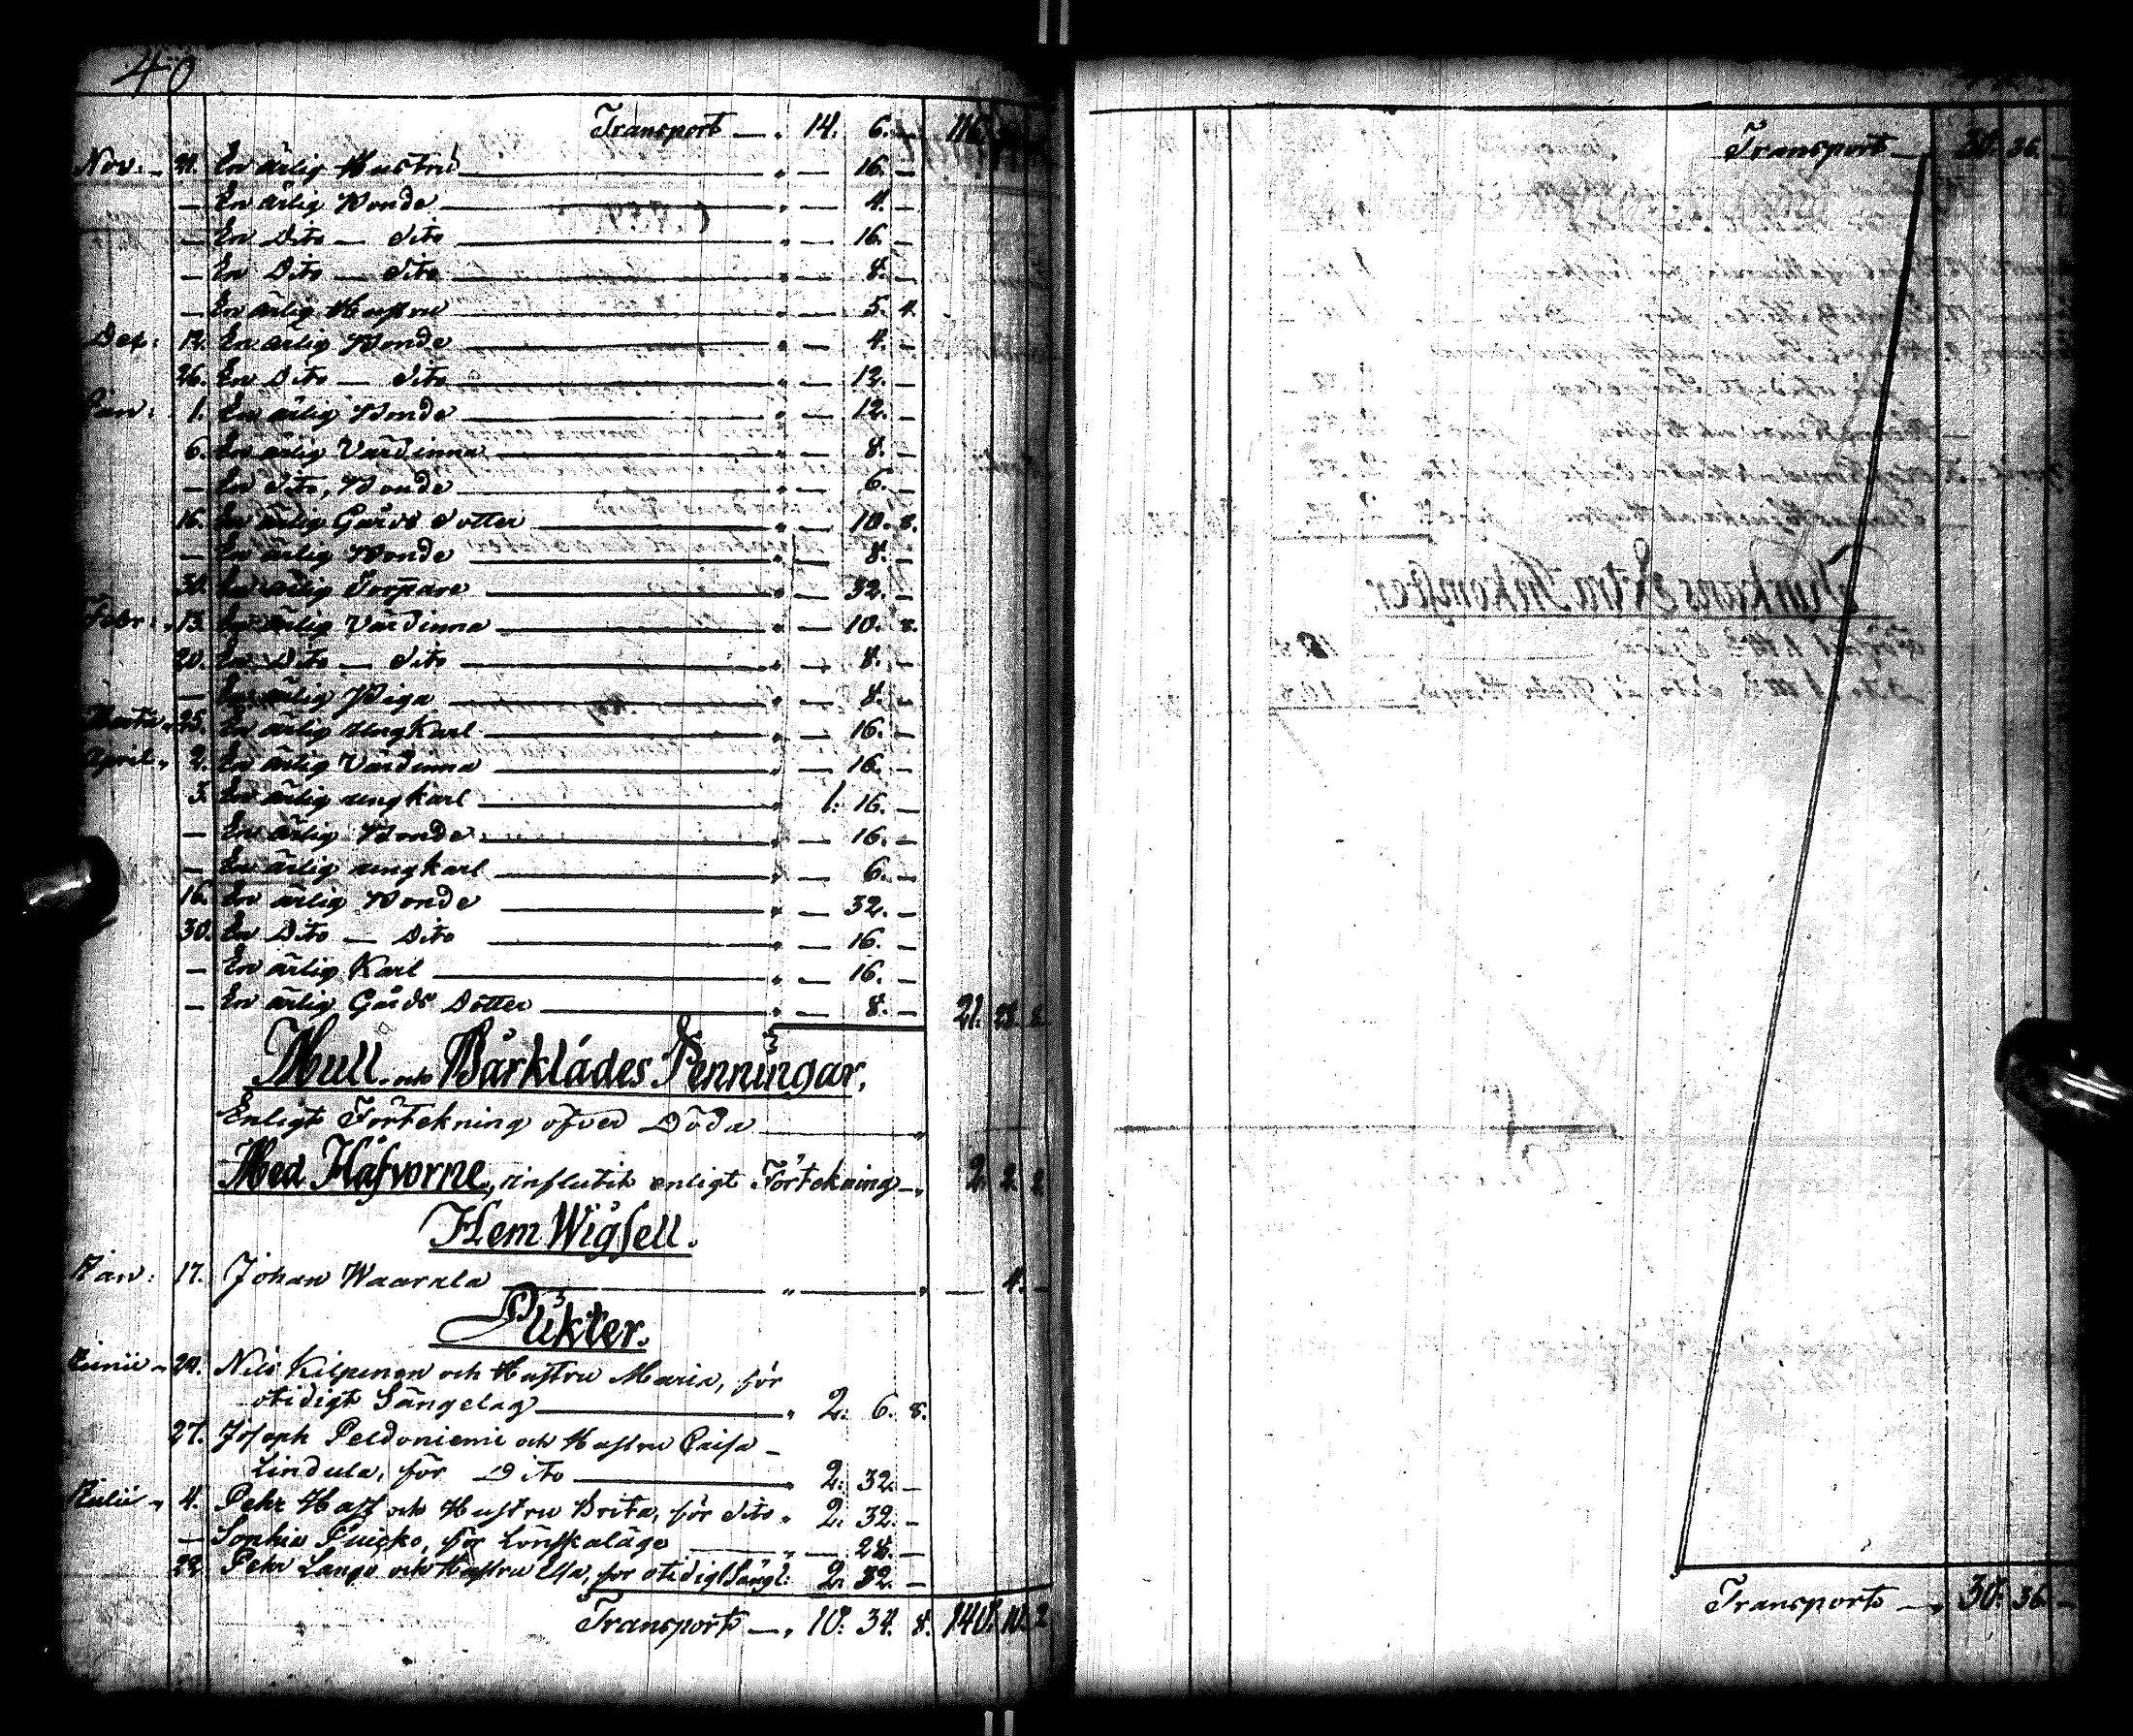 40
Transport —„ 14. 6. — 116.
Nov: — 21. En ärlig Hustru „ — 16. —
— En ärlig Bonde „ — 4. —
— En Dito — dito „ — 16. —
— En Dito — dito „ — 8. —
— En ärlig Hustru „ — 5. 4.
Dec: 12. En ärlig Bonde „ — 4. —
26. En Dito — dito „ — 12. —
Jan: 1. En ärlig Bonde „ — 12. —
6. En ärlig Värdinna „ — 8. —
— En dito, Bonde „ — 6. —
16. En ärlig Gårds dotter „ — 10. 8.
— En ärlig Bonde „ — 8. —
30. En ärlig Torpare „ — 32. —
Febr: „ 13. En ärlig Värdinna „ — 10. 8.
20. En Dito — dito „ — 8. —
— En ärlig Piga „ — 8. —
Martii „ 25. En ärlig ungkarl „ — 16. —
April „ 2. En ärlig Värdinna „ — 16. —
3. En ärlig ungkarl „ 1: 16. —
— En ärlig Bonde „ — 16. —
— En ärlig ungkarl „ — 6. —
16. En ärlig Bonde „ — 32. —
30. En Dito — Dito „ — 16. —
— En ärlig Karl „ — 16. —
— En ärlig Gårds Dotter „ — 8. — 21. 28.
Mull. och Bårklädes Penningar.
Enligt Förtekning öfver Döda „
Med Håfvorne, influtit enligt Förtekning —„ 2. 2. 2
Hem Wigsell.
Jan: 17. Johan Waarala „ „ — 4. —
Plikter.
Junii „ 24. Nils Kilpinen och Hustru Maria, för
otidigt Sängelag „ 2: 6. 8.
27. Joseph Peldoniemi och Hustru Caisa —
Lindula, för Dito „ 2: 32. —
Julii „ 4. Pehr Hass och Hustru Brita, för dito „ 2: 32: —
— Sophia för Lönskaläge „ — 28. —
22. Pehr Lango och Hustru Elsa, för otidigt Sängl: 2: 32. —
Transport —„ 10: 34. 8. 140. 10. 2
Transport —„ 30. 36. —
Transport —„ 30. 36. —